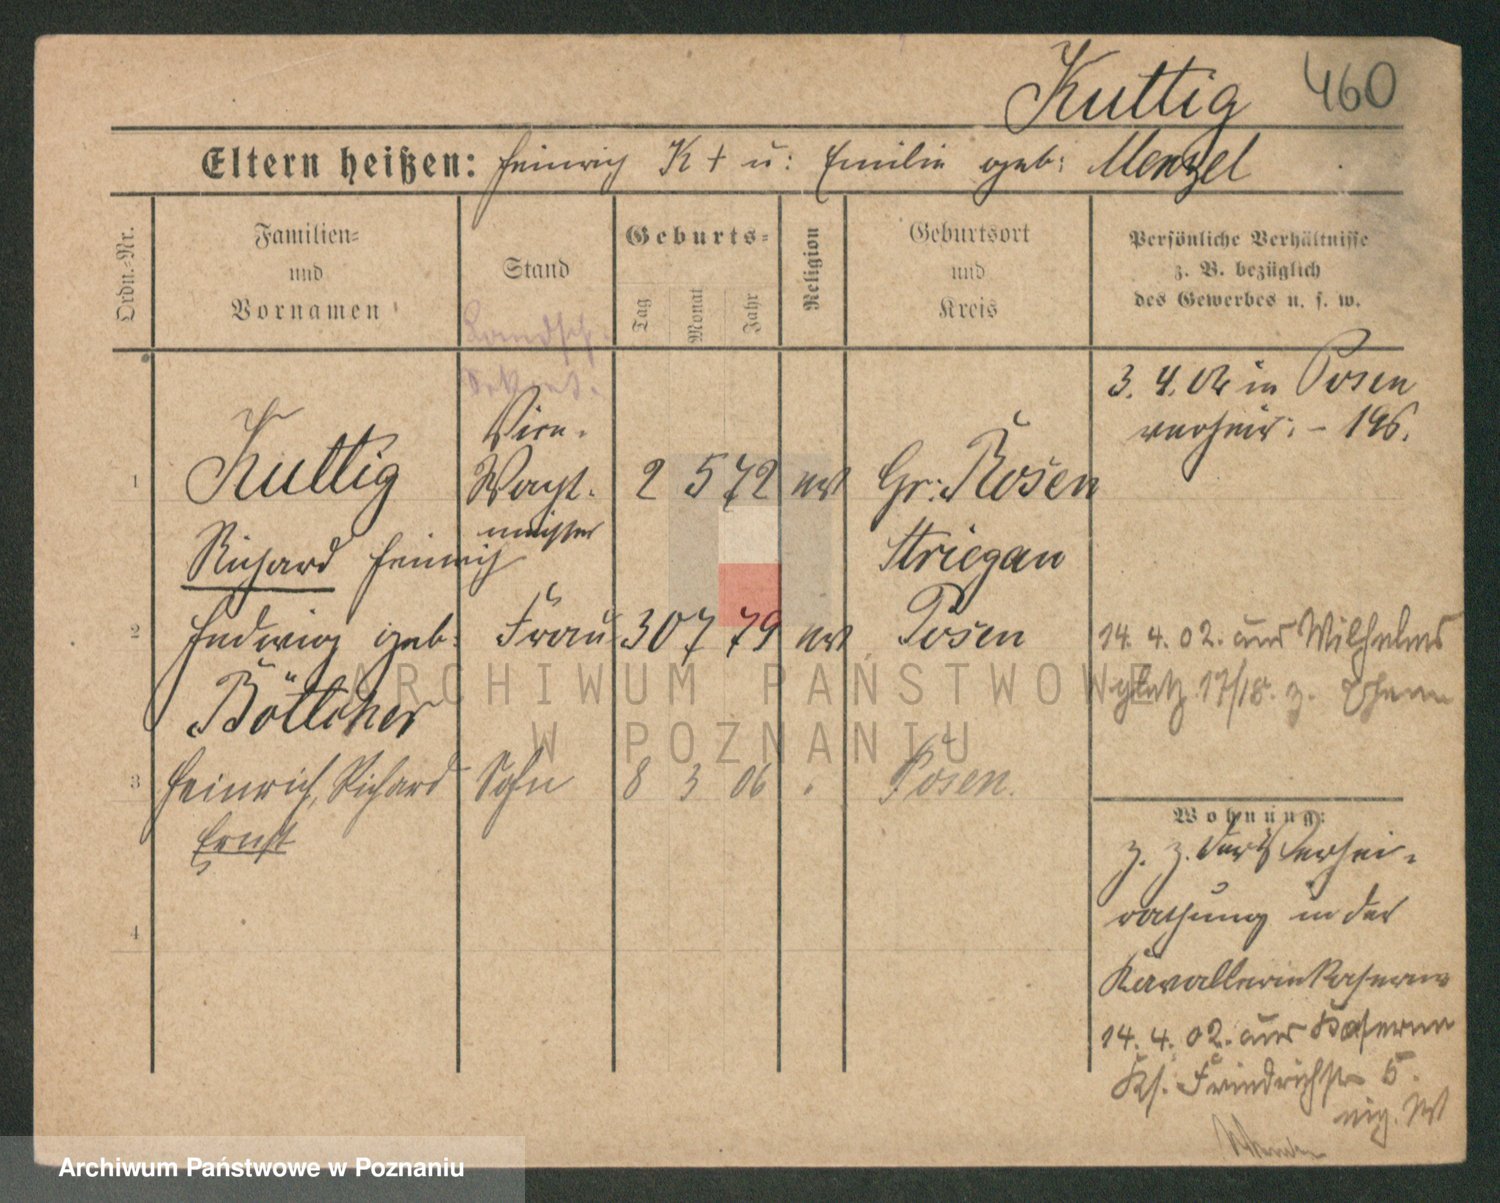 Kuttig 460
Eltern heißen: Heinrich K + u: Emilie geb: Menzel
Ordn.-Nr.
Familien-
und
Vornamen
Stand
Geburts-
Tag
Monat
Jahr
Religion
Geburtsort
und
Kreis
Persönliche Verhältnisse
z. B. bezüglich
des Gewerbes u. s. w.
Landsch.
3. 4. 02 in Posen
verheir. - 146.
Vice-
1 Kuttig Wacht- 2 5 72 ev Gr: Rosen
meister
Richard Heinrich Striegau
2 Hedwig geb: Frau 30 7 79 ev Posen
Böttcher
14. 4. 02. aus Wilhelms
platz 17/18. z.
3 Heinrich, Richard Sohn 8 3 06 . Posen.
Ernst
4
Wohnung:
z. Z. der Verhei-
rathung in der
Kavallerie Kaserne
14. 4. 02. aus Kaserne
Friedrichstr 5.
ARCHIWUM PAŃSTWOWE
W POZNANIU
Archiwum Państwowe w Poznaniu